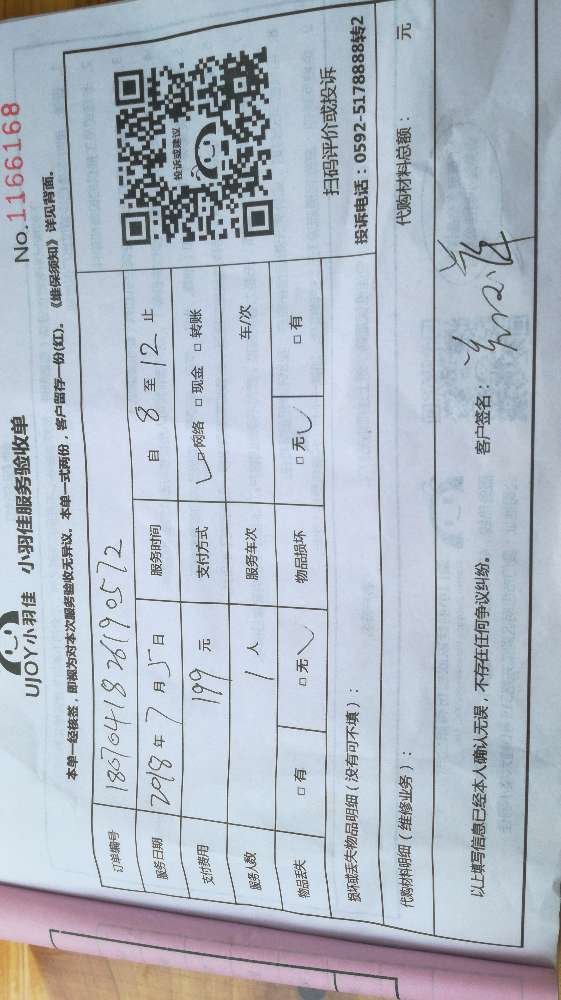 UJOY小羽佳 小羽佳服务验收单
No.1166168
本单一经核签，即视为对本次服务验收无异议。本单一式两份，客户留存一份(红)。《维保须知》详见背面。
订单编号 1807041826190572
服务日期 2018年7月5日 服务时间 自 8 至 12 止
支付费用 199 元 支付方式 □网络 □现金 □转账
服务人数 1 人 服务车次 车/次
物品丢失 □有 □无 物品损坏 □无 □有
投诉或建议
扫码评价或投诉
投诉电话：0592-5178888转2
损坏或丢失物品明细（没有可不填）：
代购材料明细（维修业务）： 代购材料总额： 元
以上填写信息已经本人确认无误，不存在任何争议纠纷。 客户签名：